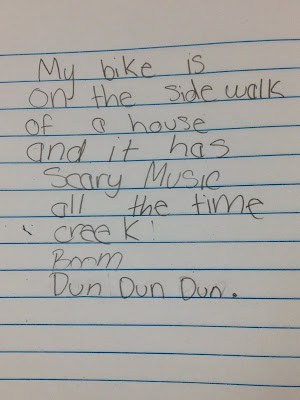 My bike is
on the side walk
of a house
and it has
Scary Music
all the time
creek
Bmm
Dun Dun Dun.